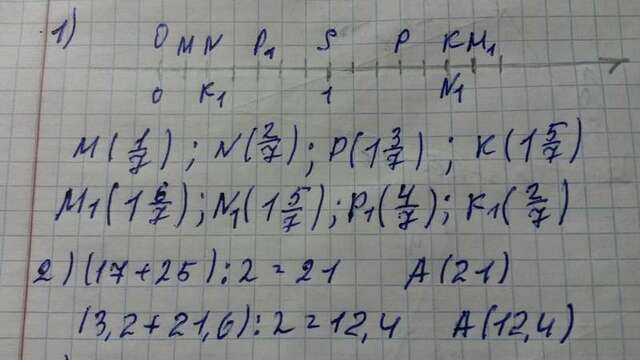 1)
O M N P₁ S P K M₁
0 K₁ 1 N₁
M(1/7); N(2/7); P(1 3/7); K(1 5/7)
M₁(1 6/7); N₁(1 5/7); P₁(4/7); K₁(2/7)
2) (17+25):2=21 A(21)
(3,2+21,6):2=12,4 A(12,4)